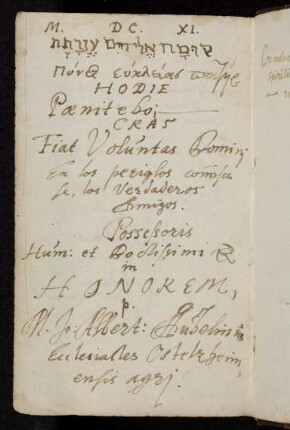 M. DC. XI.
קומה אלהים עזרתה
Πόνος εὐκλείας πατήρ
HODIE
Pœnitebo,
CRAS
Fiat Voluntas Domini,
En los periglos conoscu
se, los Verdaderos
Amigos.
Possessoris
Hum: et Doctissimi
in
HONOREM,
p.
M. Jo: Albert:
Ecclesiastes Ostelzheim
ensis agrj.